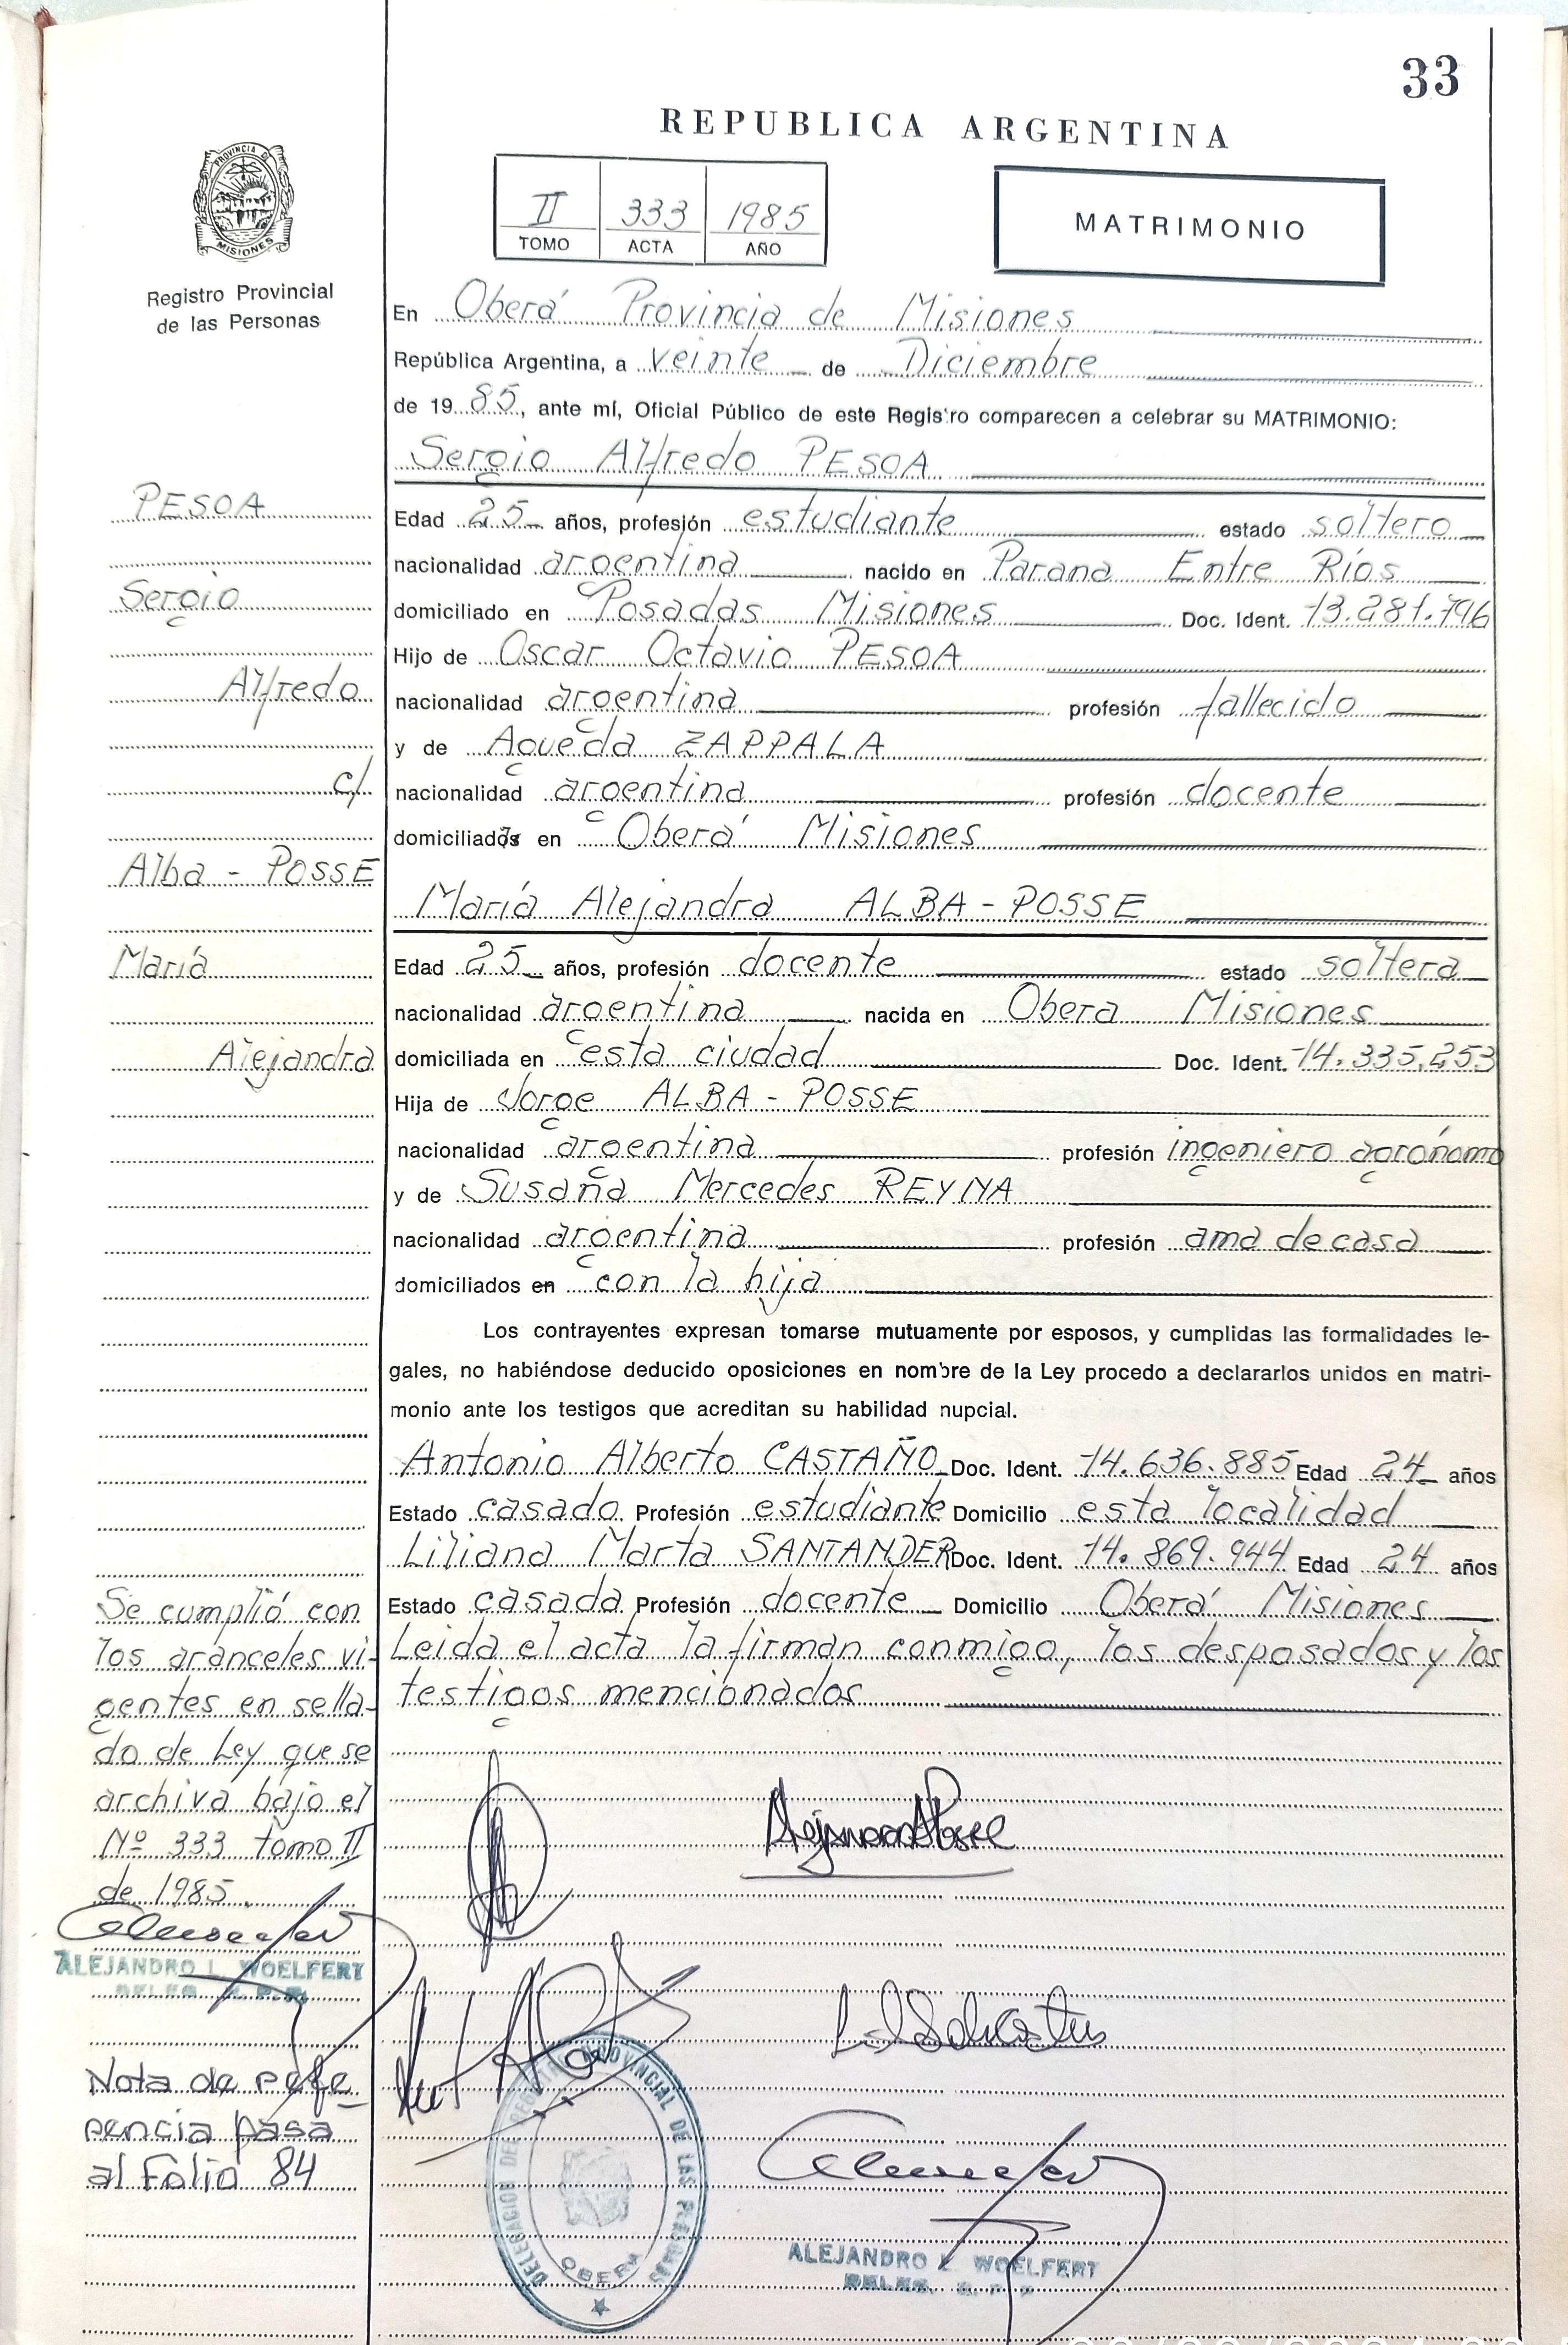 33
REPUBLICA ARGENTINA
II 333 1985
TOMO ACTA AÑO
MATRIMONIO
PROVINCIA D
MISIONES
Registro Provincial
de las Personas
En Oberá Provincia de Misiones
República Argentina, a veinte de Diciembre
de 1985, ante mí, Oficial Público de este Registro comparecen a celebrar su MATRIMONIO:
Sergio Alfredo PESOA
Edad 25 años, profesión estudiante estado soltero
nacionalidad argentina nacido en Parana Entre Ríos
domiciliado en Posadas Misiones Doc. Ident. 13.281.796
Hijo de Oscar Octavio PESOA
nacionalidad argentina profesión fallecido
y de Agueda ZAPPALA
nacionalidad argentina profesión docente
domiciliada en Oberá Misiones
María Alejandra ALBA - POSSE
Edad 25 años, profesión docente estado soltera
nacionalidad argentina nacida en Obera Misiones
domiciliada en esta ciudad Doc. Ident. 14.335.253
Hija de Jorge ALBA - POSSE
nacionalidad argentina profesión ingeniero agrónomo
y de Susana Mercedes REYNA
nacionalidad argentina profesión ama de casa
domiciliados en con la hija
Los contrayentes expresan tomarse mutuamente por esposos, y cumplidas las formalidades le-
gales, no habiéndose deducido oposiciones en nombre de la Ley procedo a declararlos unidos en matri-
monio ante los testigos que acreditan su habilidad nupcial.
Antonio Alberto CASTAÑO Doc. Ident. 14.636.885 Edad 24 años
Estado casado Profesión estudiante Domicilio esta localidad
Liliana Marta SANTANDER Doc. Ident. 14.869.944 Edad 24 años
Estado casada Profesión docente Domicilio Oberá Misiones
Leida el acta la firman conmigo, los desposados y los
testigos mencionados
PESOA
Sergio
Alfredo
c/
Alba - POSSE
María
Alejandra
Se cumplió con
los aranceles vi-
gentes en sella-
do de Ley que se
archiva bajo el
Nº 333 tomo II
de 1985.
ALEJANDRO L. WOELFERT
DELEG. R.P.P.
Nota de refe
rencia pasa
al Folio 84
DELEGACION DEL REGISTRO PROVINCIAL DE LAS PERSONAS
OBERA
ALEJANDRO L. WOELFERT
DELEG. R. P. P.